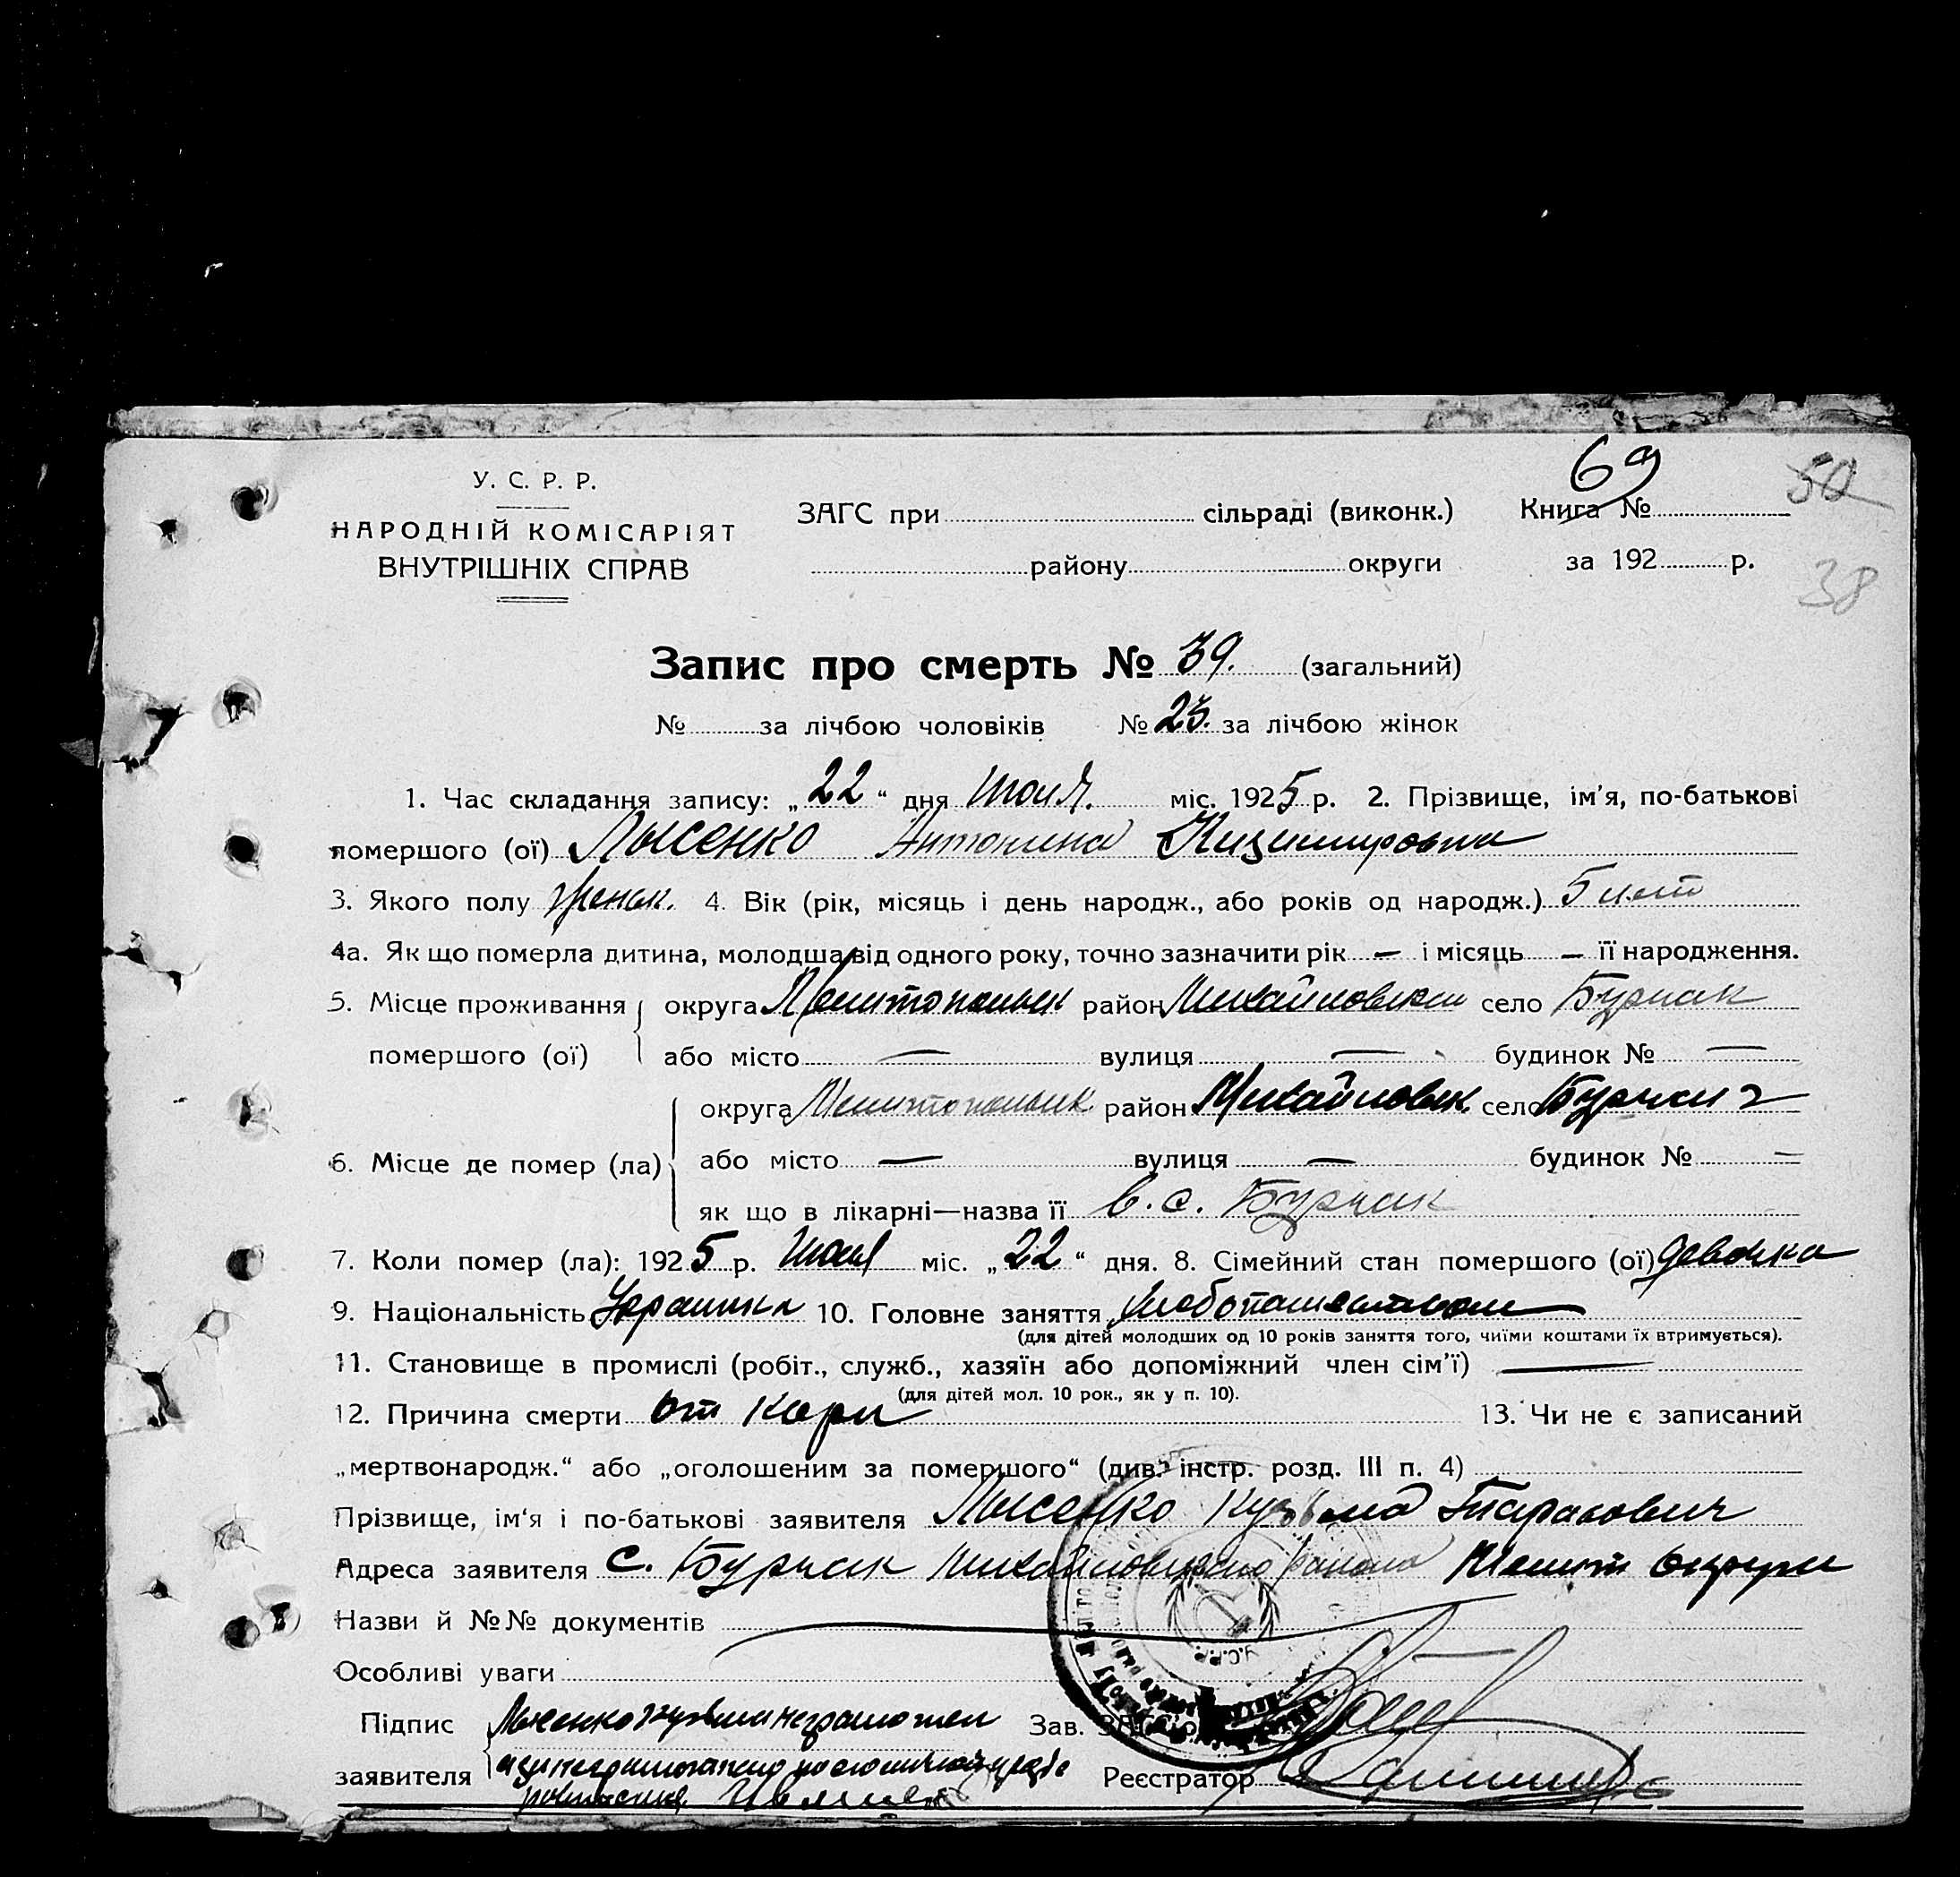 69
У. С. Р. Р.
НАРОДНІЙ КОМІСАРІЯТ
ВНУТРІШНІХ СПРАВ
ЗАГС при сільраді (виконк.)
району округи
Книга № 50
за 192 р.
38
Запис про смерть № 39. (загальний)
№ за лічбою чоловіків № 23. за лічбою жінок
1. Час складання запису: „22“ дня Июля. міс. 1925 р. 2. Прізвище, ім'я, по-батькові
помершого (ої) Лысенко Антонина
3. Якого полу женск. 4. Вік (рік, місяць і день народж., або років од народж.) 5 лет
4а. Як що померла дитина, молодша від одного року, точно зазначити рік — і місяць — її народження.
5. Місце проживання округа Мелитопольск район Михайловский село Бурчак
помершого (ої) або місто — вулиця — будинок № —
округа Мелитопольск. район Михайловск. село
6. Місце де помер (ла) або місто — вулиця — будинок № —
як що в лікарні—назва її в. с. Бурчак
7. Коли помер (ла): 1925 р. Июля міс. „22“ дня. 8. Сімейний стан помершого (ої) девочка
9. Національність Украинка 10. Головне заняття
(для дітей молодших од 10 років заняття того, чиїми коштами їх втримується).
11. Становище в промислі (робіт., служб., хазяїн або допоміжний член сім'ї) —
(для дітей мол. 10 рок., як у п. 10).
12. Причина смерти от Кори 13. Чи не є записаний
„мертвонародж.“ або „оголошеним за помершого“ (див. інстр. розд. III п. 4)
Прізвище, ім'я і по-батькові заявителя Лысенко Кузьма Тарасович
Адреса заявителя с. Бурчак Михайловского района Мелит округи
Назви й №№ документів
Особливі уваги
Підпис Лысенко Кузьма неграмотен
Зав. ЗАГС'ом
заявителя
Реєстратор
У.С.Р.Р.